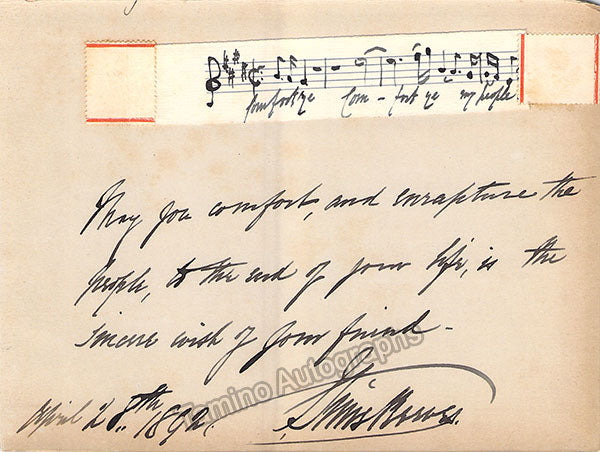 Comfort ye Com - fort ye my people.
May you comfort, and enrapture the
people, to the end of your life, is the
sincere wish of your friend -
Sims Reeves.
April 28th 1892.
Tamino Autographs